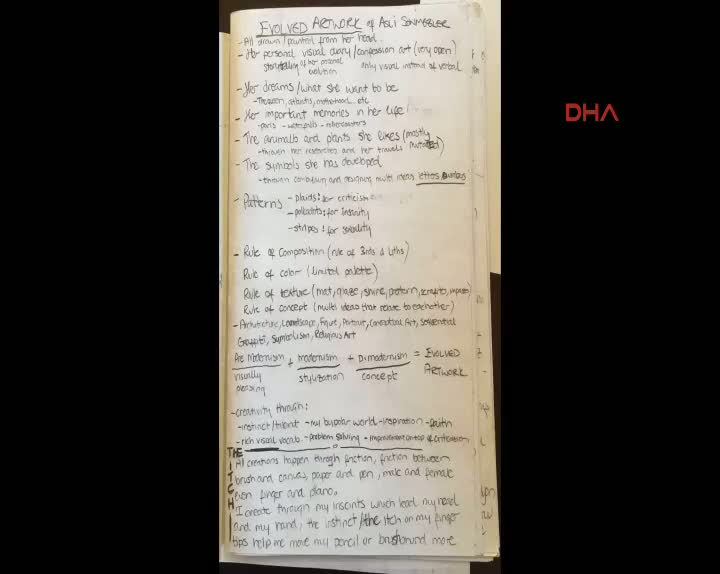 EVOLVED ARTWORK of ASLI SONMEZLER
- All drawn/painted from her head.
- Her personal visual diary/confession art (very open)
storytelling of her personal only visual instead of verbal
evolution
- Her dreams/what she want to be
motherhood etc
- Her important memories in her life
- paris - waterfalls - rollercoasters
- The animals and plants she likes (mostly
- through her researches and her travels mutated)
- The symbols she has developed
- through combining and designing multi ideas letters numbers
- Patterns - plaids: for criticism
- polkadots: for insanity
- stripes: for
- Rule of Composition (rule of 3rds &
Rule of color (limited palette)
Rule of texture (mat, glaze, shine, pattern, impasto)
Rule of concept (multi ideas that relate to eachother)
- Architecture, Landscape, Figure, Portrait, Conceptual Art, Sequential
Graffiti, Symbolism, Religious Art
Pre Modernism + modernism + = EVOLVED
visually stylization concept ARTWORK
pleasing
- creativity through:
- instinct/talent - my bipolar world - inspiration - faith
- rich visual vocab. - problem solving - improvisation on top of
THE ITCH
All creations happen through friction, friction between
brush and canvas, paper and pen, male and female
even finger and piano.
I create through my inscints which lead my head
and my hand, the instinct/the itch on my finger
tips help me move my pencil or brush around more
DHA